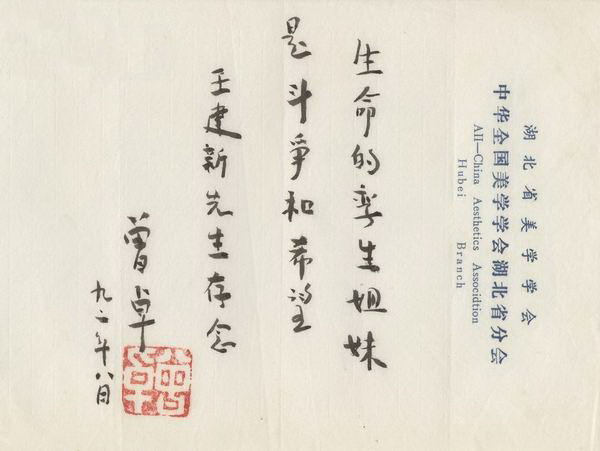 湖北省美学学会
中华全国美学学会湖北省分会
All—China Aesthetics Associdtion
Hubei Branch
生命的孪生姐妹
是斗争和希望
王建新先生存念
曾卓
九二年八月
曾卓